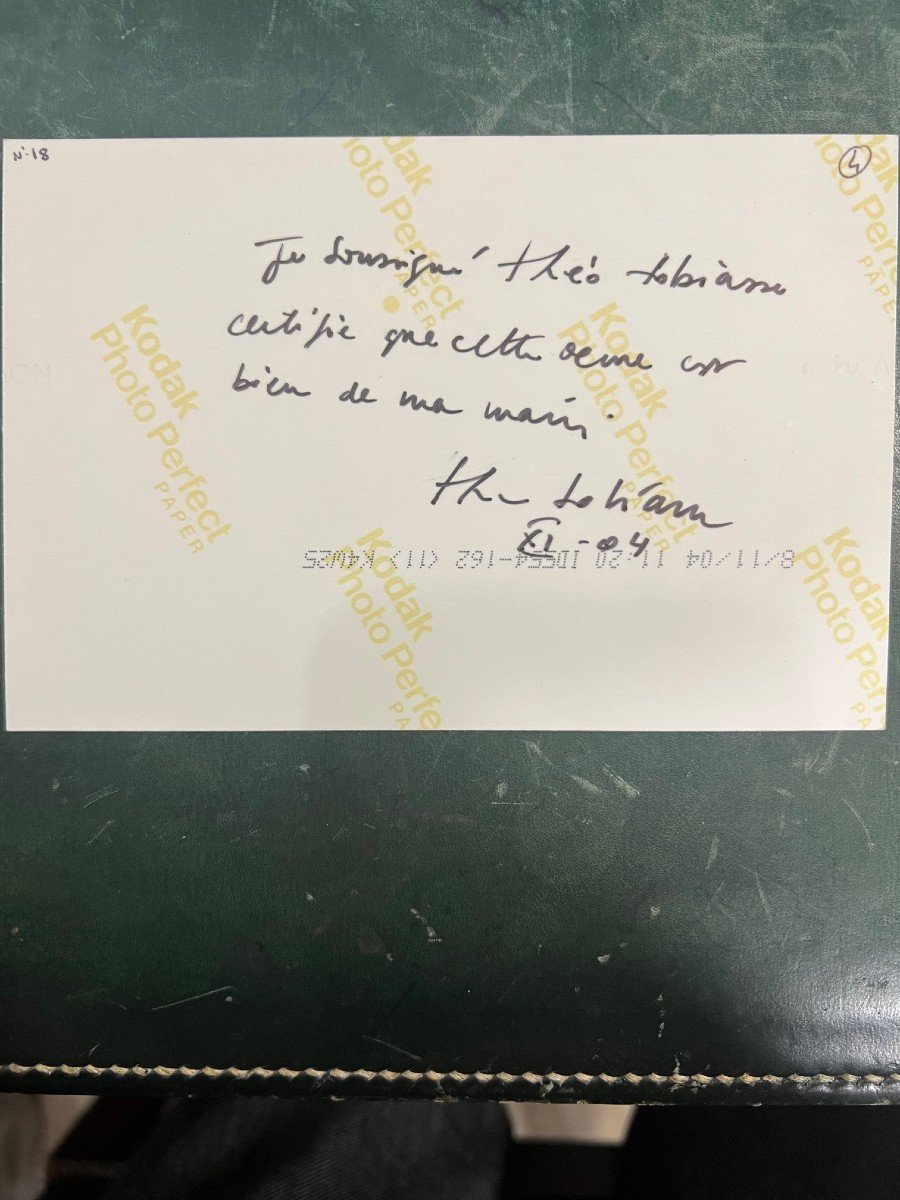 N°18
4
Je soussigné théo tobiasse
certifie que cette oeuvre est
bien de ma main.
théo tobiasse
XI-04
8/11/04 11:20 IDEE4-162 (11) K4W25
Kodak
Photo Perfect
PAPER
Kodak
Photo Perfect
PAPER
Kodak
Photo Perfect
PAPER
Kodak
Photo Perfect
PAPER
Kodak
Photo Perfect
PA
Kodak
Photo Perfect
PA